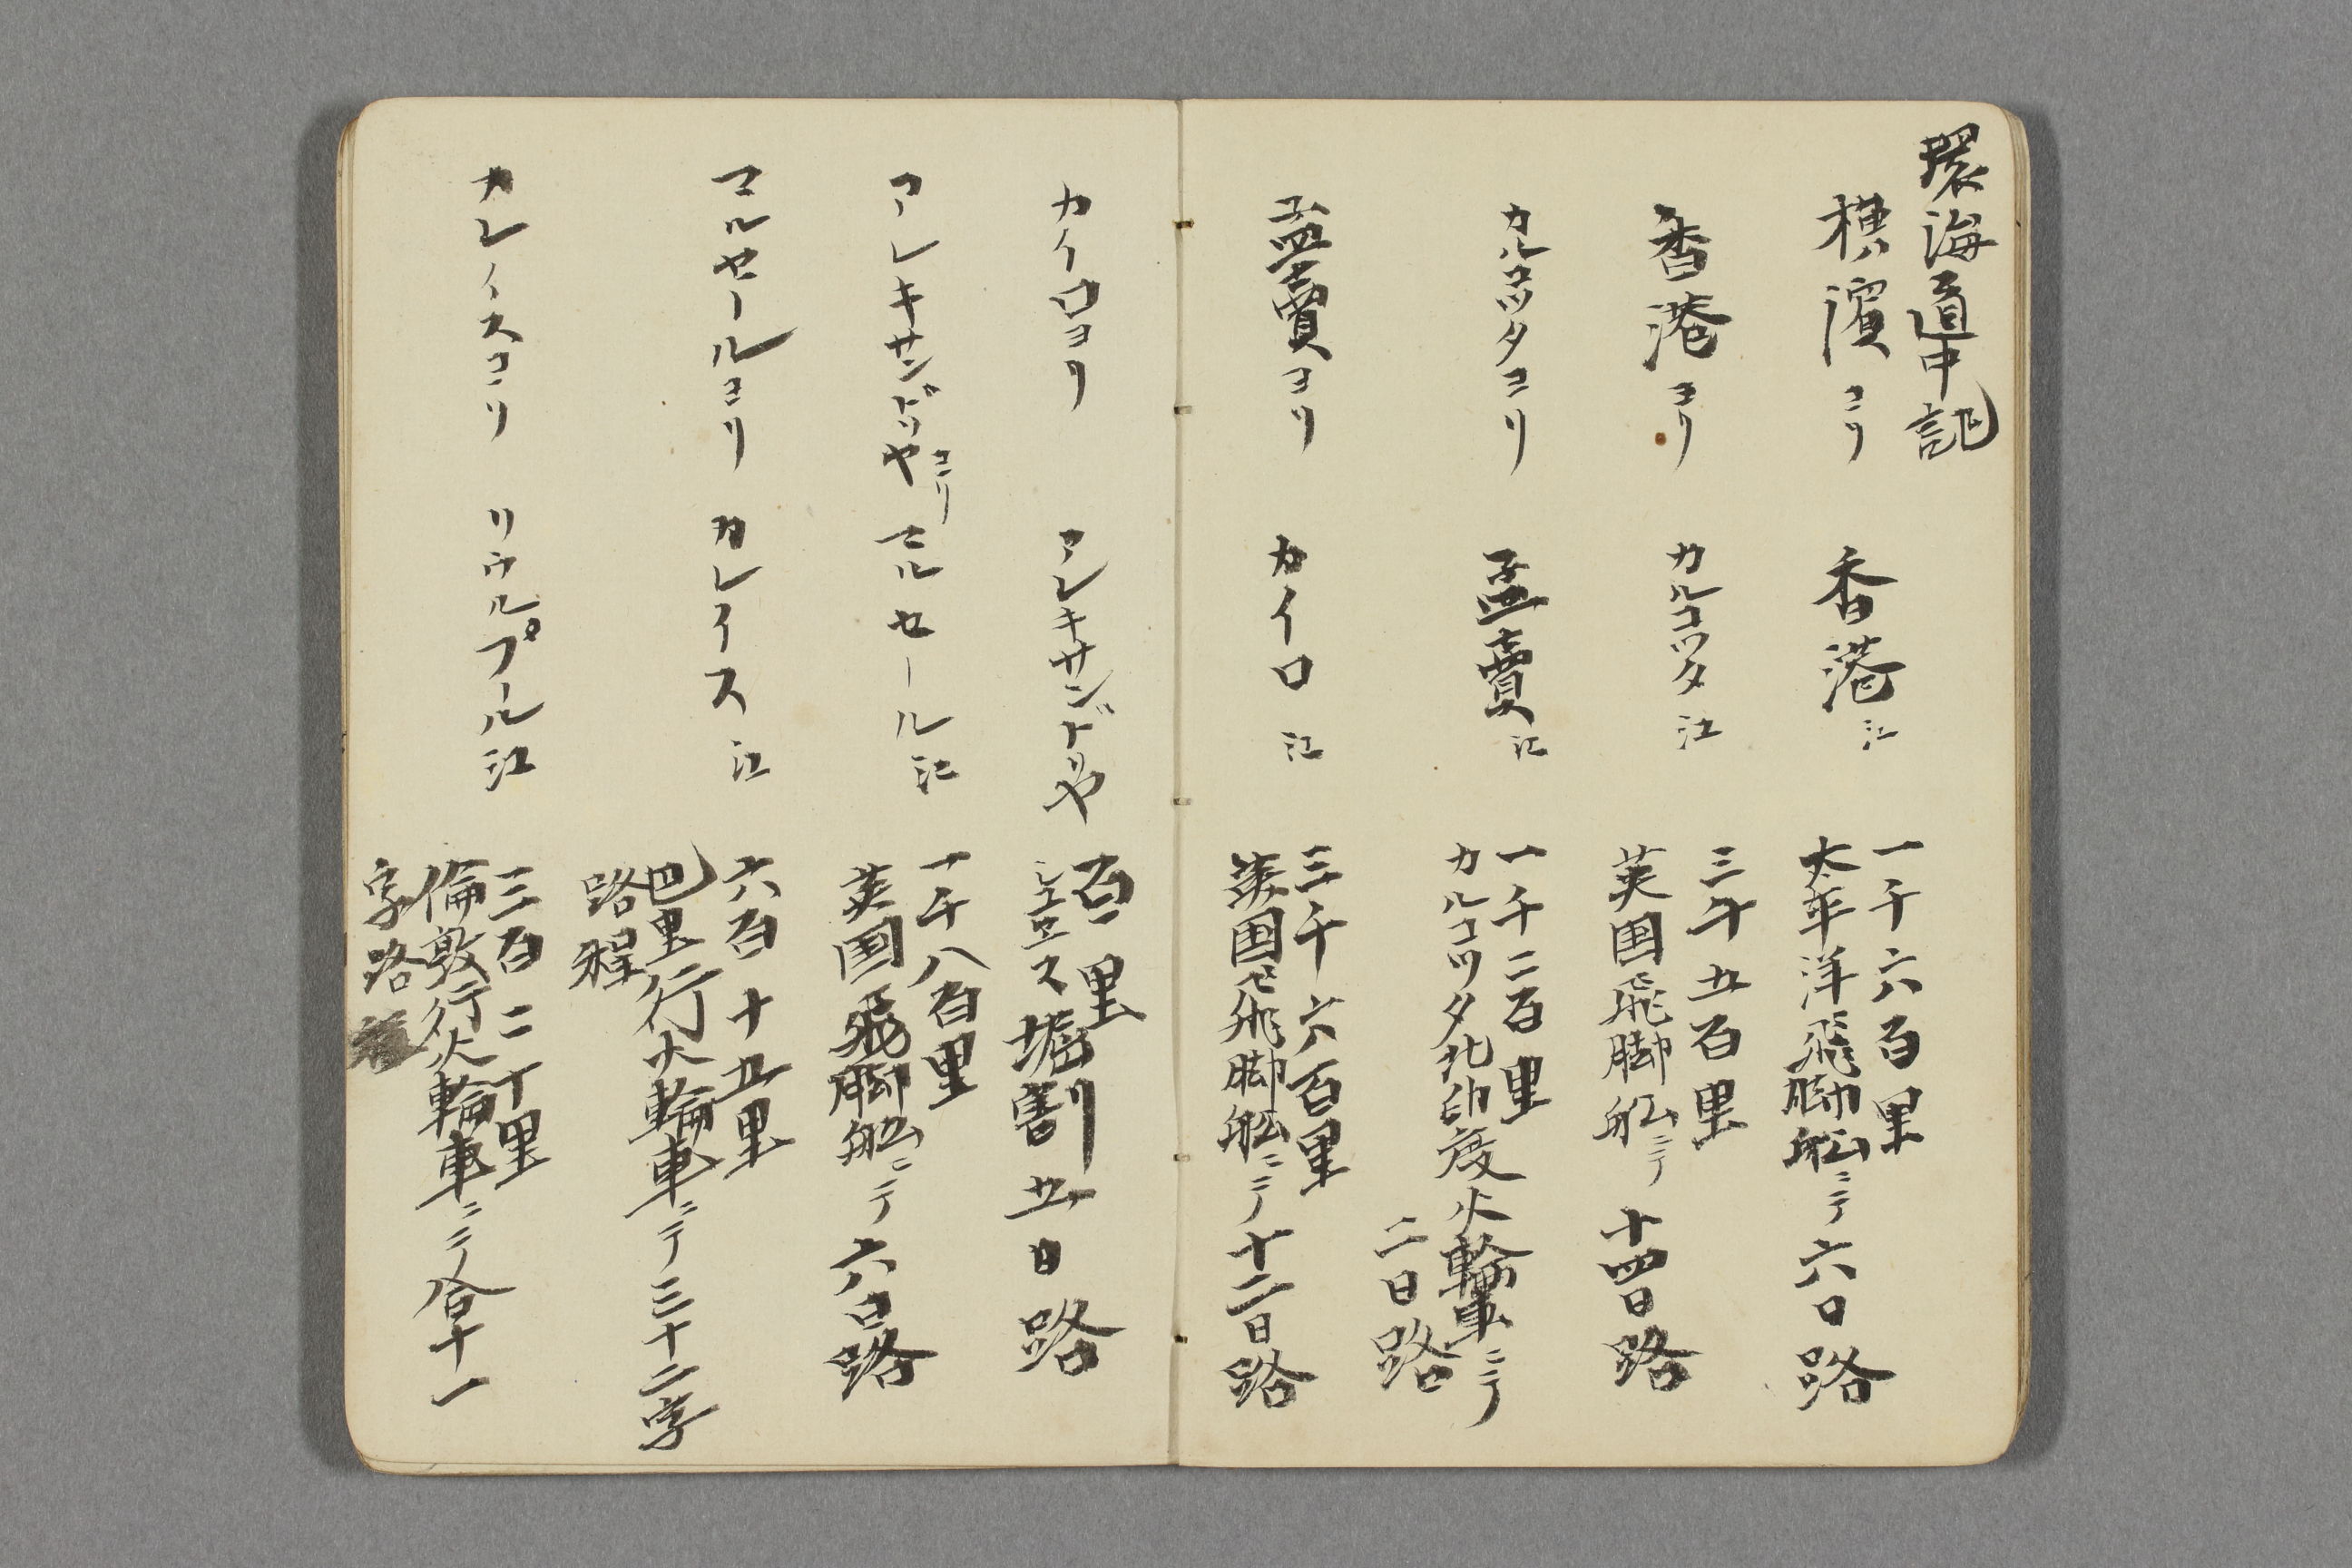 環海道中記
横濱ヨリ 香港江
一千六百里
太平洋飛脚船ニテ六日路
香港ヨリ カルコツタ江
三千五百里
英国飛脚船ニテ十四日路
カルコツタヨリ 孟賣江
一千二百里
カルコツタ北印度火輪車ニテ
二日路
孟賣ヨリ カイロ江
三千六百里
英国飛脚船ニテ十二日路
カイロヨリ アレキサンドリヤ
百里
シユエス堀割五日路
アレキサンドリヤヨリ マルセール江
一千八百里
英国飛脚船ニテ六日路
マルセールヨリ カレイス江
六百十五里
巴里行火輪車ニテ三十二字
路程
カレイスヨリ リウルプール江
三百二十里
倫敦行火輪車ニテ合十一
字路